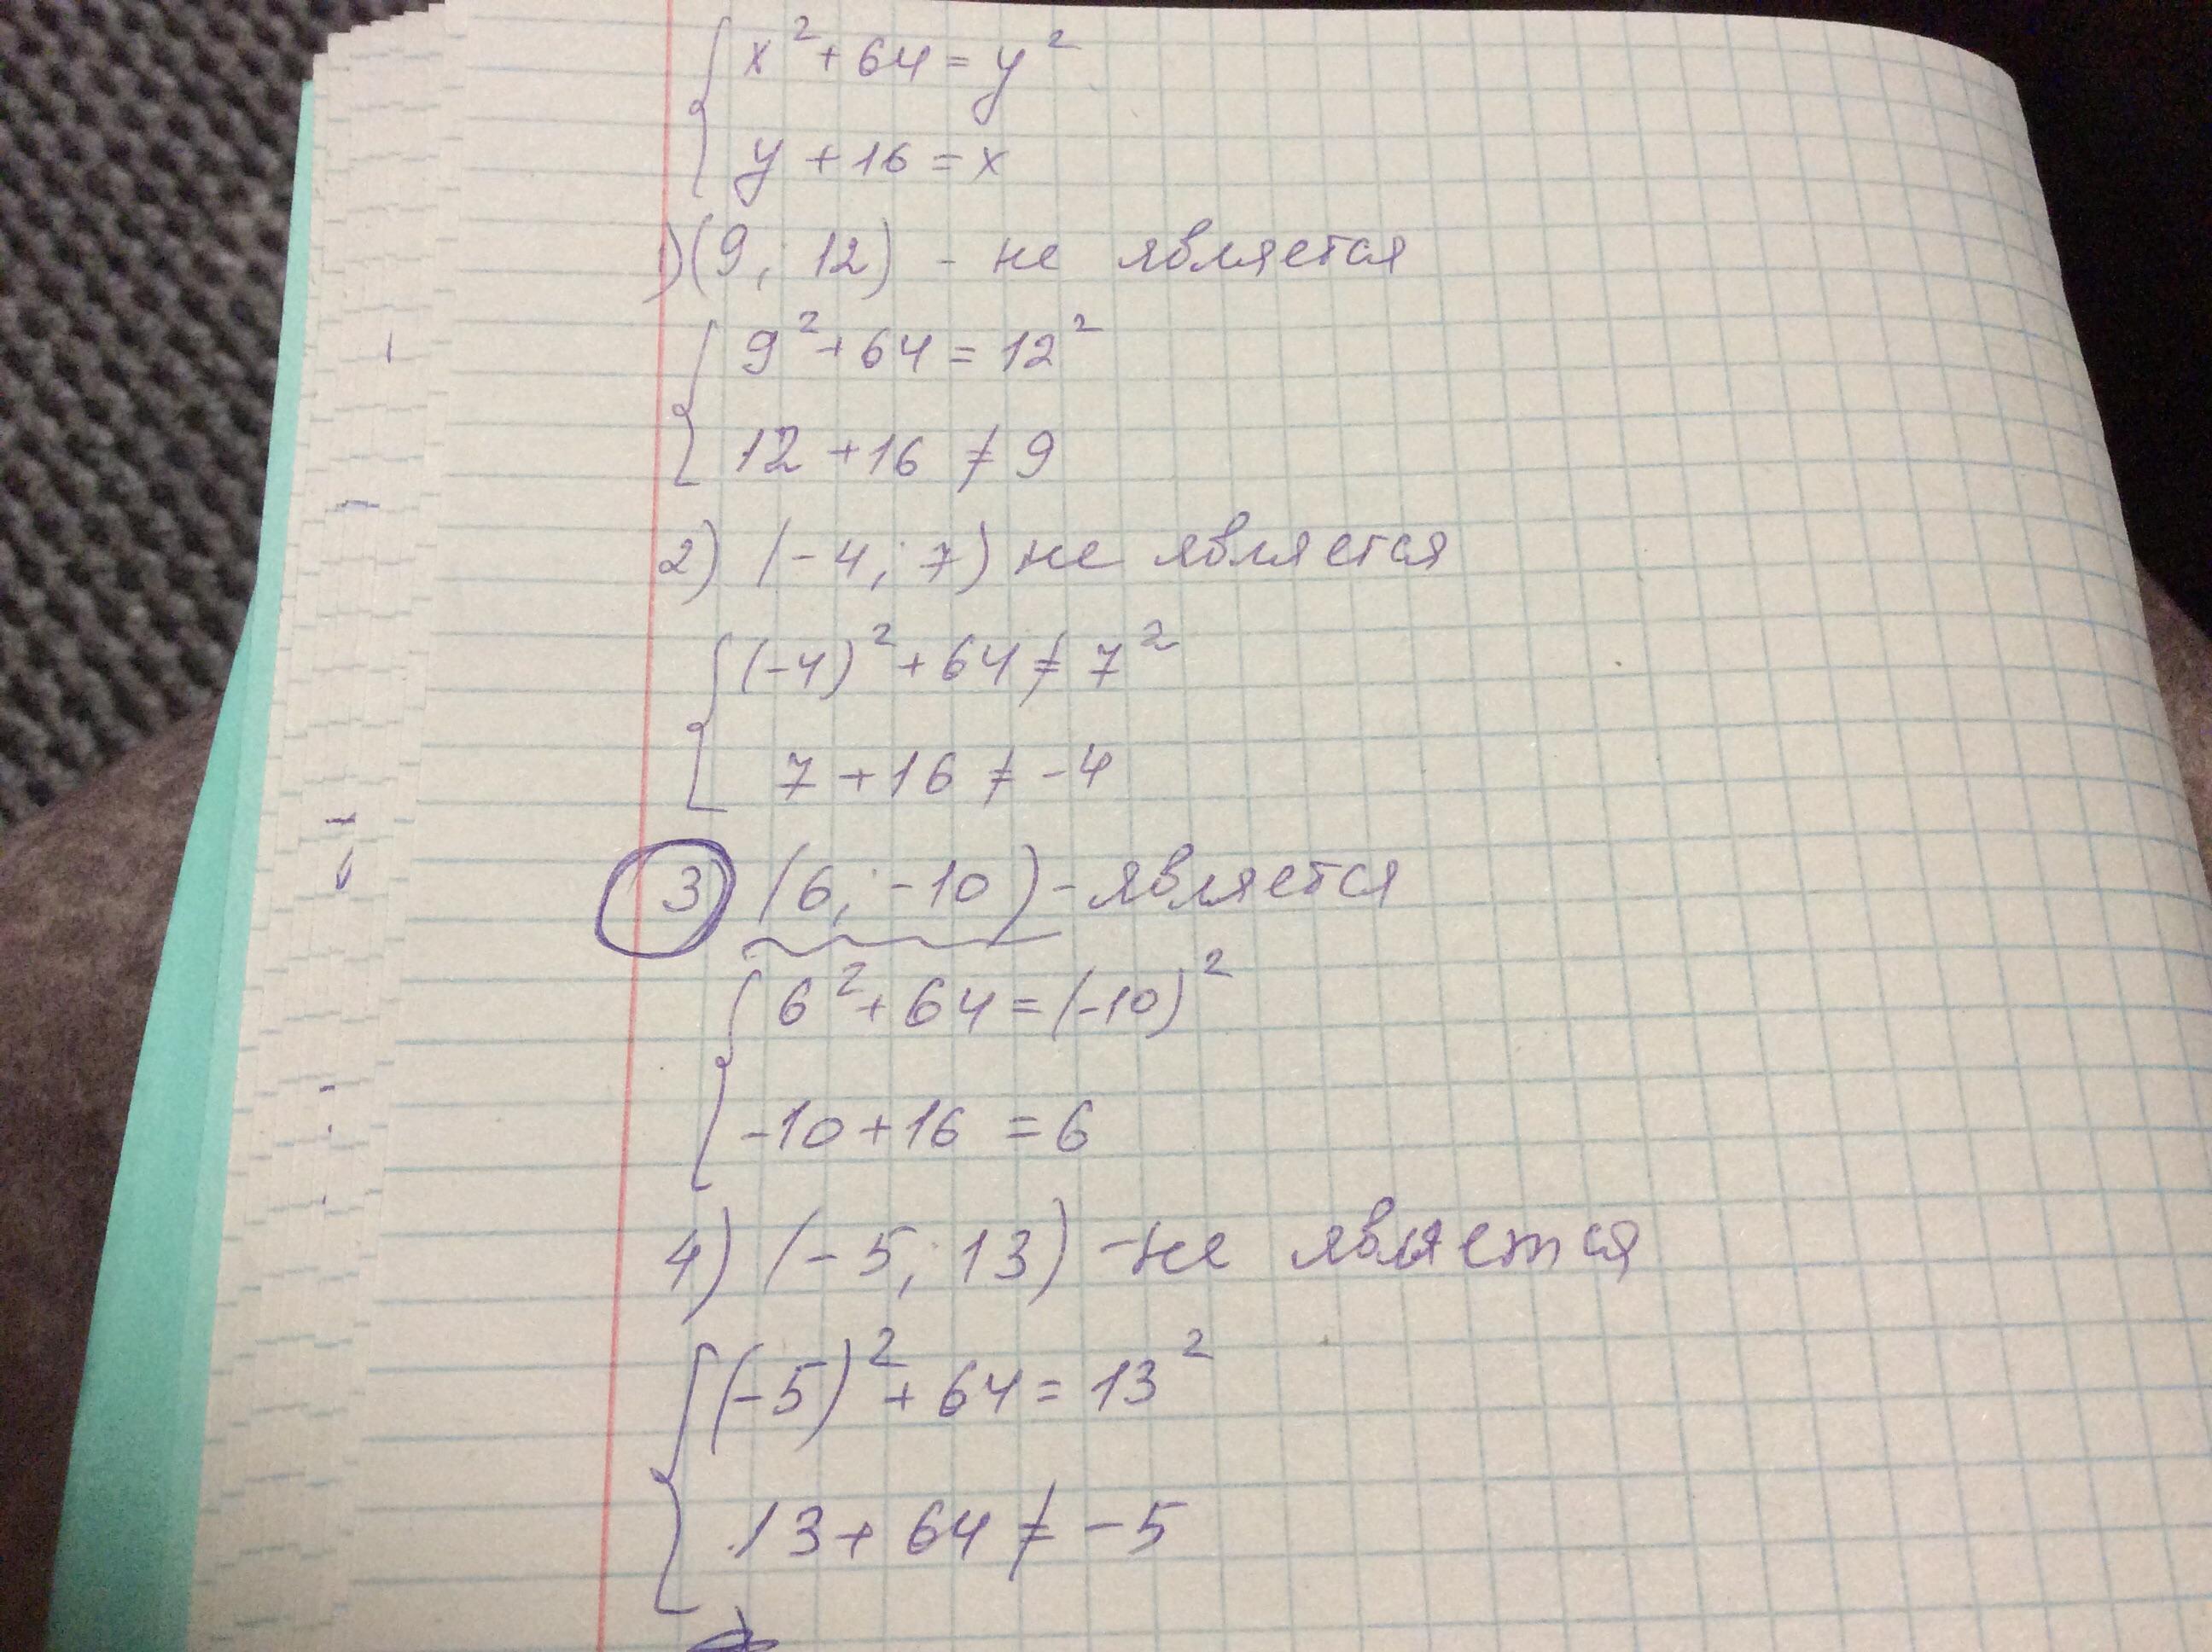 x² + 64 = y²
y + 16 = x
1) (9; 12) - не является
9² + 64 = 12²
12 + 16 ≠ 9
2) (-4; 7) не является
(-4)² + 64 ≠ 7²
7 + 16 ≠ -4
3) (6; -10) - является
6² + 64 = (-10)²
-10 + 16 = 6
4) (-5; 13) - не является
(-5)² + 64 = 13²
13 + 64 ≠ -5